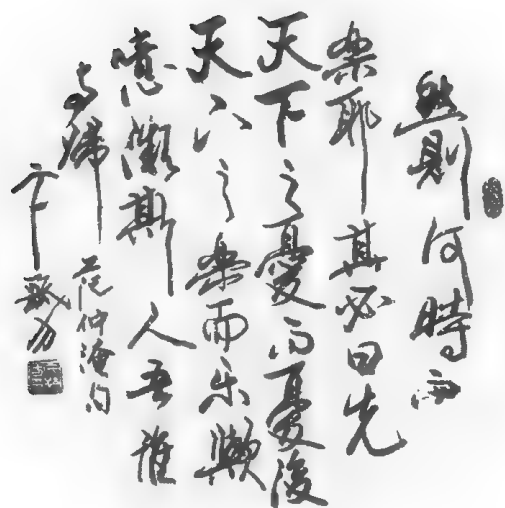 然則何時而
樂耶其必曰先
天下之憂而憂後
天下之樂而乐歟
噫微斯人吾誰
与歸 范仲淹句